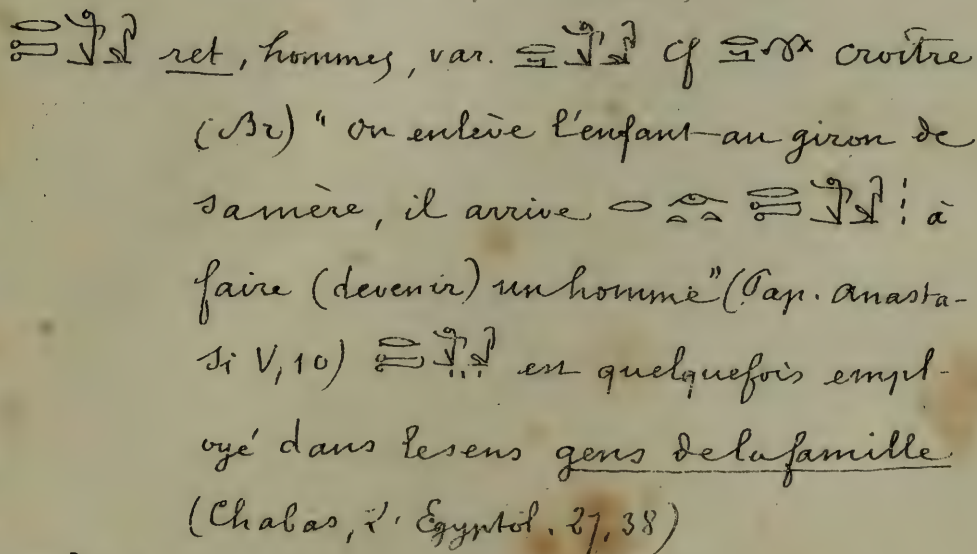 ret, hommes, var. cf croître
(Br) " on enlève l'enfant au giron de
sa mère, il arrive à
faire (devenir) un homme" (Pap. Anasta-
si V, 10) est quelquefois empl-
oyé dans le sens gens de la famille
(Chabas, l' Egyptol. 27, 38)